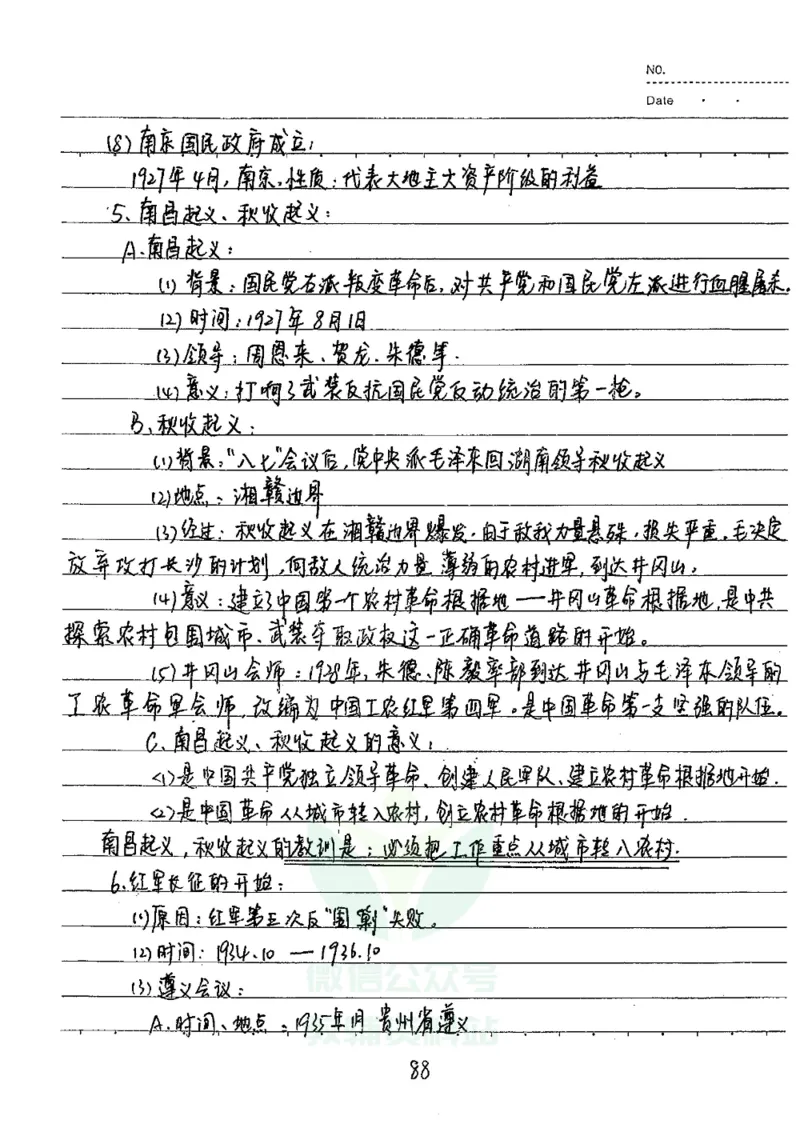 NO.
Date
(8)南京国民政府成立:
1927年4月,南京.性质:代表大地主大资产阶级的利益
5、南昌起义、秋收起义:
A.南昌起义:
(1)背景:国民党右派叛变革命后,对共产党和国民党左派进行血腥屠杀.
(2)时间:1927年8月1日
(3)领导:周恩来、贺龙、朱德等.
(4)意义:打响了武装反抗国民党反动统治的第一枪。
B、秋收起义:
(1)背景:"八七"会议后,党中央派毛泽东回湖南领导秋收起义
(2)地点:湘赣边界
(3)经过:秋收起义在湘赣边界爆发.由于敌我力量悬殊,损失严重.毛决定
放弃攻打长沙的计划,向敌人统治力量薄弱的农村进军,到达井冈山.
(4)意义:建立了中国第一个农村革命根据地——井冈山革命根据地,是中共
探索农村包围城市、武装夺取政权这一正确革命道路的开始。
(5)井冈山会师:1928年,朱德、陈毅率部到达井冈山与毛泽东领导的
工农革命军会师,改编为中国工农红军第四军。是中国革命第一支坚强的队伍。
C.南昌起义、秋收起义的意义:
<1>是中国共产党独立领导革命、创建人民军队、建立农村革命根据地开始.
<2>是中国革命从城市转入农村,创立农村革命根据地的开始.
南昌起义,秋收起义的教训是:必须把工作重点从城市转入农村.
6.红军长征的开始:
(1)原因:红军第五次反"围剿"失败。
(2)时间:1934.10—1936.10
(3)遵义会议:
A.时间、地点:1935年1月贵州省遵义
微信公众号
教辅资料站
88